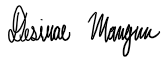 Desirae Mangun